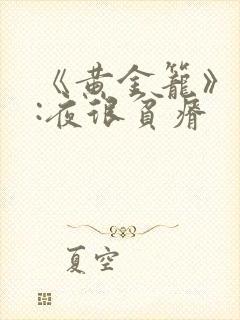 《黄金籠》
:夜很貧瘠
夏空